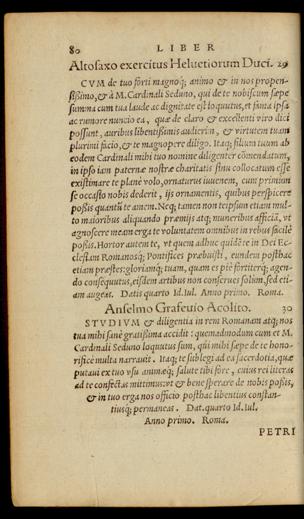 80 LIBER
Altosaxo exercitus Heluetiorum Duci. 29
CVM de tuo forti magnoq; animo & in nos propen-
sißimo, & à M. Cardinali Seduno, qui de te nobiscum sæpe
summa cum tua laude ac dignitate est loquutus, et fama ipsa
ac rumore nuncio ea, quæ de claro & excellenti viro dici
possunt, auribus libentißimis audierim, & virtutem tuam
plurimi facio, & te magnopere diligo. Itaq; filium tuum ab
eodem Cardinali mihi tuo nomine diligenter cōmendatum,
in ipso iam paternæ nostræ charitatis sinu collocatum esse
existimare te planè volo, ornaturus iuuenem, cum primùm
se occasio nobis dederit, ijs ornamentis, quibus perspicere
poßis quantū te amem. Neq; tamen non teipsum etiam mul-
to maioribus aliquando præmijs atq; muneribus afficiā, vt
agnoscere meam erga te voluntatem omnibus in rebus facilè
poßis. Hortor autem te, vt quem adhuc quidē te in Dei Ec-
clesiam Romanosq; Pontifices præbuisti, eundem posthac
etiam præstes: gloriamq; tuam, quam es piè fortiterq; agen-
do consequutus, eisdem artibus non conserues solùm, sed eti-
am augeas. Datis quarto Id. Iul. Anno primo. Roma.
Anselmo Grafeuio Acolito. 30
STVDIVM & diligentia in rem Romanam atq; nos
tua mihi sanè gratißima accidit: quemadmodum cum et M.
Cardinali Seduno loquutus sum, qui mihi sæpe de te hono-
rificè multa narrauit. Itaq; te sublegi ad ea sacerdotia, quæ
putaui ex tuo vsu animæq; salute tibi fore, cuius rei literas
ad te confectas mittimus: et & bene sperare de nobis poßis,
& in tuo erga nos officio posthac libentius constan-
tiusq; permaneas. Dat. quarto Id. Iul.
Anno primo. Roma.
PETRI